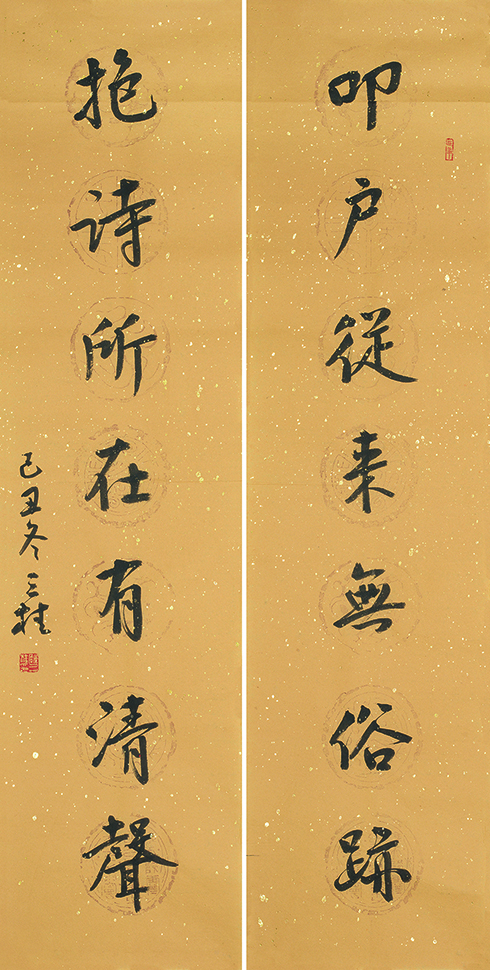 叩户從来無俗跡
抱诗所在有清聲
己丑冬三桂